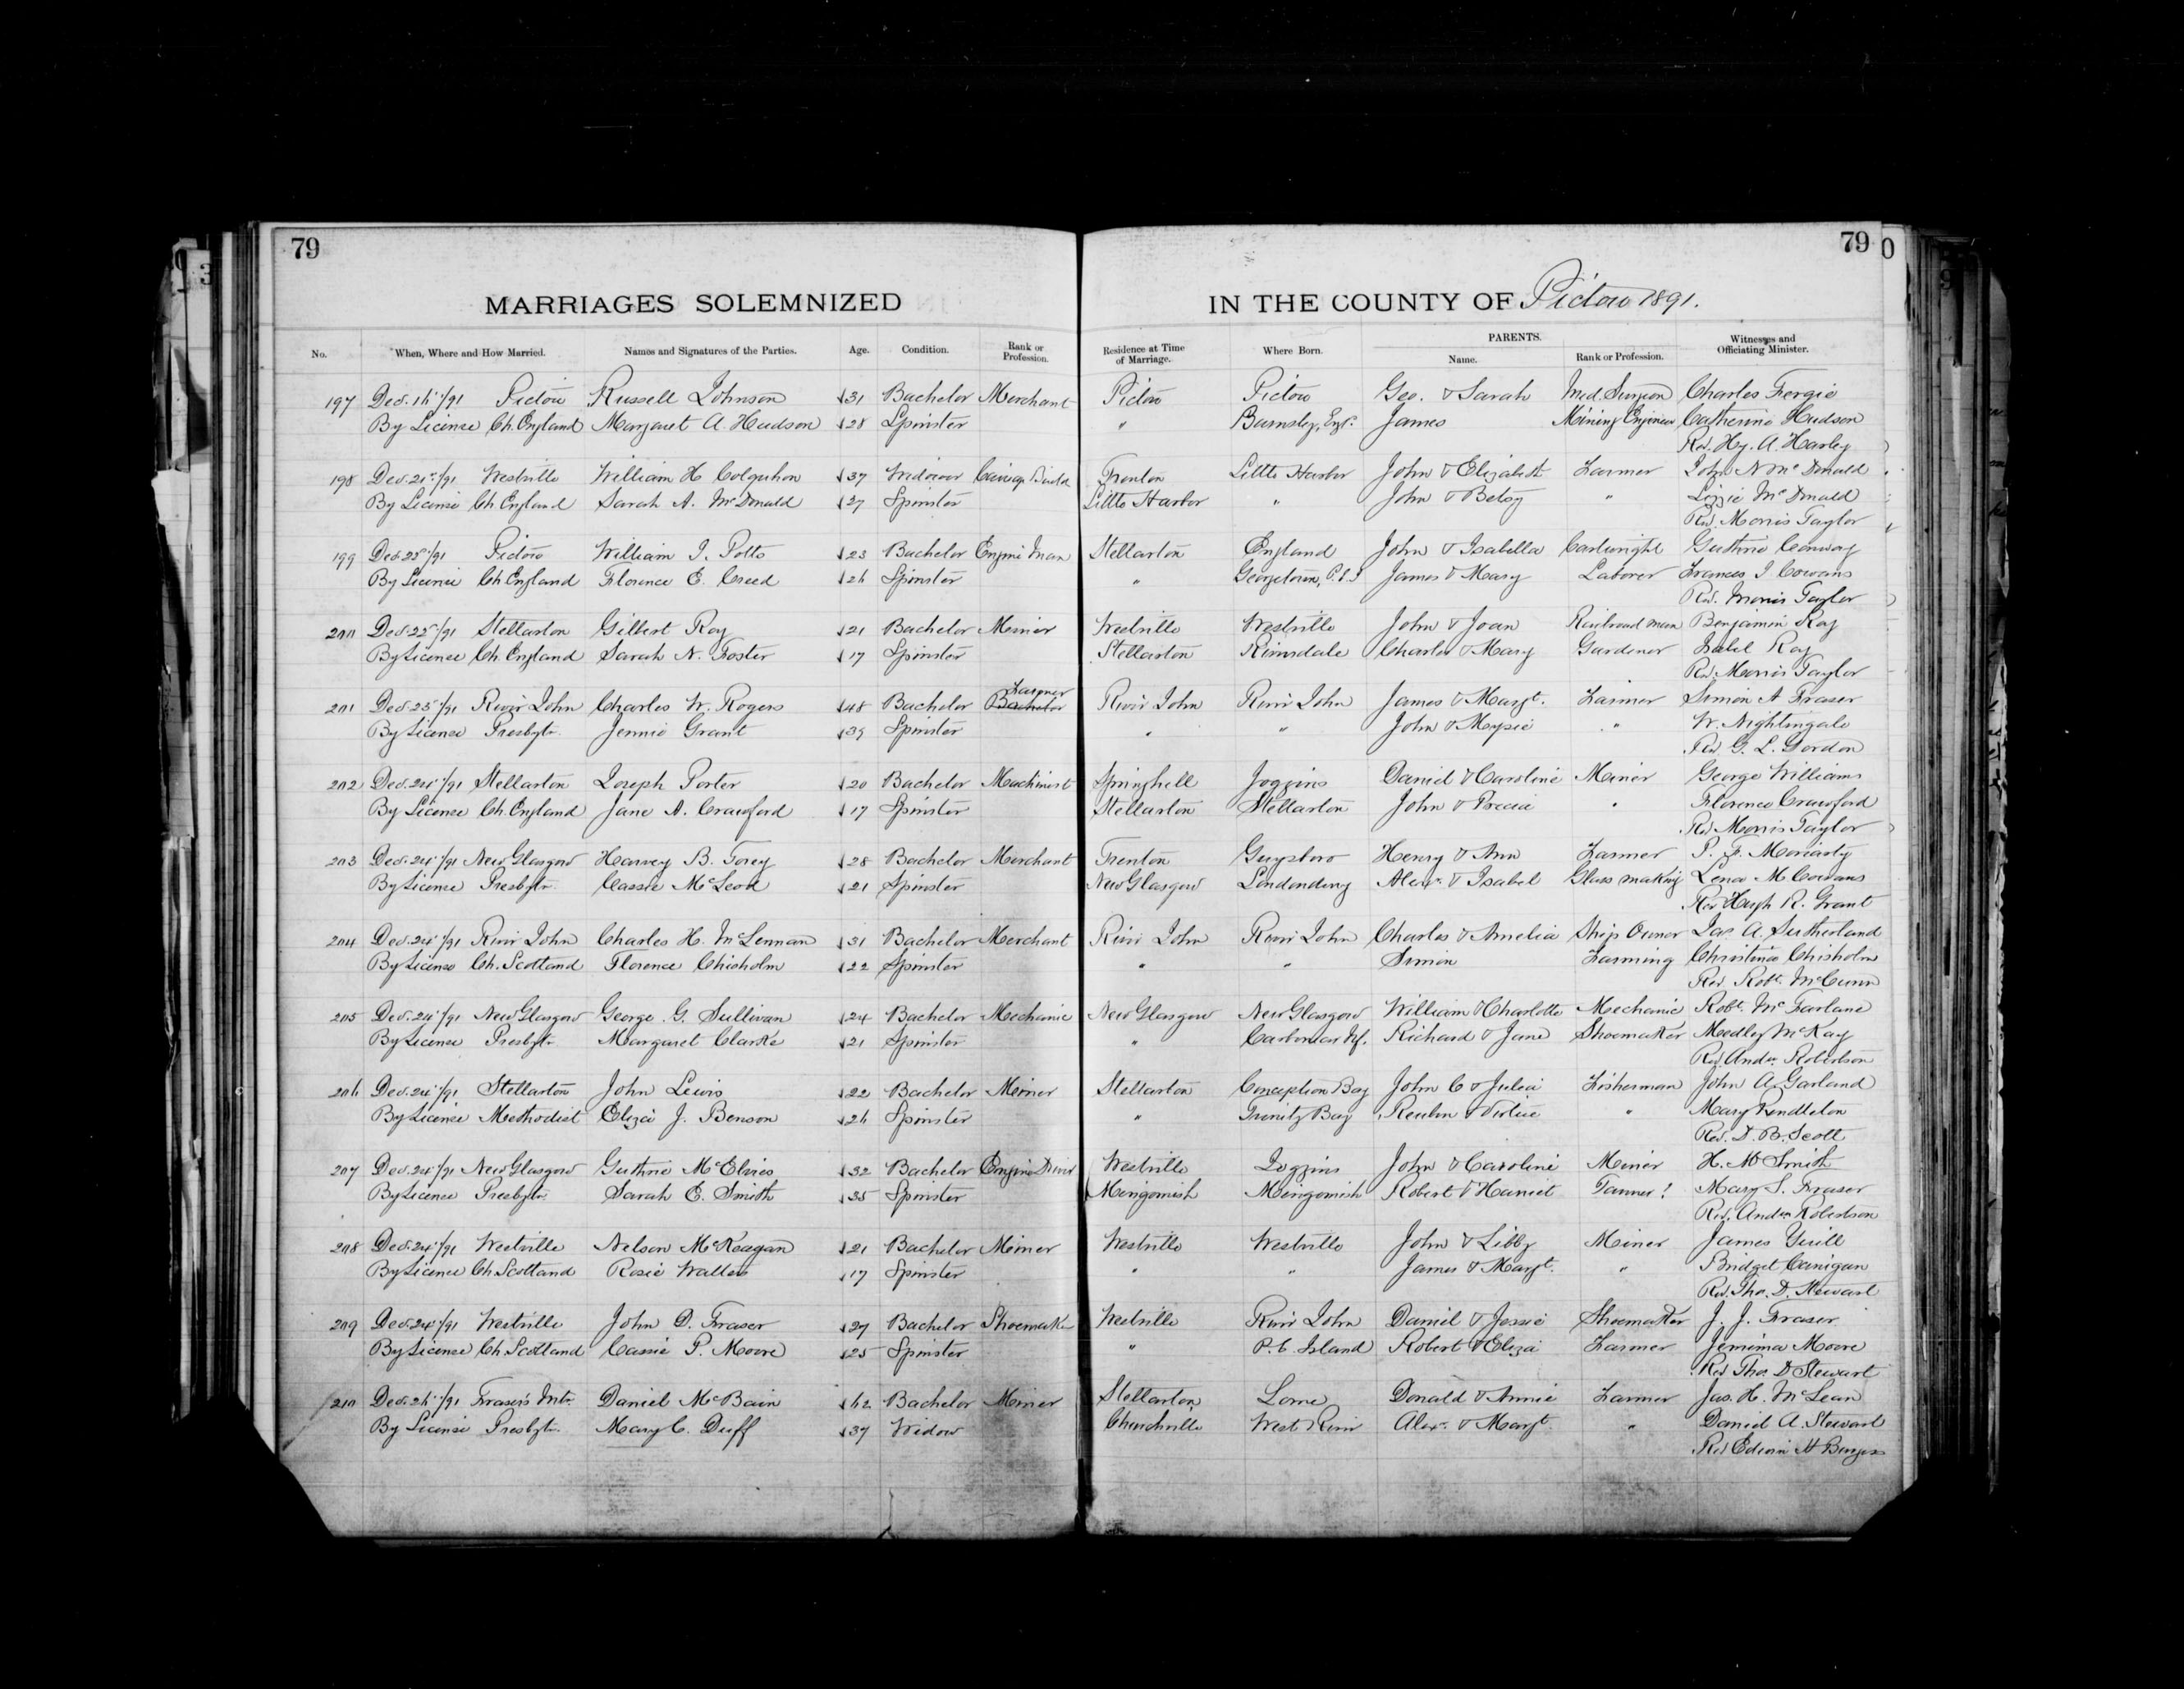 79
79
0
MARRIAGES SOLEMNIZED IN THE COUNTY OF Pictou 1891.
No. When, Where and How Married. Names and Signatures of the Parties. Age. Condition. Rank or Profession. Residence at Time of Marriage. Where Born. PARENTS. Name. Rank or Profession. Witnesses and Officiating Minister.
197 Dec. 16/91 Pictou Russell Johnson 31 Bachelor Merchant Pictou Pictou Geo. & Sarah Med. Surgeon Charles Fergie
By License Ch. England Margaret A. Hudson 28 Spinster " Barnsley, Eng. James Mining Engineer Catherine Hudson
Rev. Hy. A. Harley
198 Dec. 21/91 Westville William H Colquhon 37 Widower Trenton Little Harbor John & Elizabeth Farmer John N McDonald
By License Ch England Sarah A. McDonald 27 Spinster Little Harbor " John & Betsy " Lizzie McDonald
Rev. Morris Taylor
199 Dec 22/91 Pictou William J. Potts 23 Bachelor Engine Man Stellarton England John & Isabella Cartwright Guthrie Conway
By License Ch England Florence E. Creed 26 Spinster " Georgetown, P.E.I James & Mary Laborer Frances J Cowans
Rev. Morris Taylor
200 Dec. 22/91 Stellarton Gilbert Roy 21 Bachelor Meiner Westville Westville John & Joan Railroad man Benjamin Roy
By License Ch. England Sarah N. Foster 17 Spinster Stellarton Riversdale Charles & Mary Gardener Isabel Roy
Rev. Morris Taylor
201 Dec. 23/91 River John Charles W. Rogers 48 Bachelor Farmer Bachelor River John River John James & Margt. Farmer Simon A Fraser
By License Presbytr. Jennie Grant 39 Spinster " " John & Mysie " W. Nightingale
Rev G. L. Gordon
202 Dec. 24/91 Stellarton Joseph Porter 20 Bachelor Machinist Springhill Joggins Daniel & Caroline Meiner George Williams
By License Ch. England Jane A. Crawford 17 Spinster Stellarton Stellarton John & " Florence Crawford
Rev Morris Taylor
203 Dec. 24/91 New Glasgow Harvey B. Torey 28 Bachelor Merchant Trenton Guysboro Henry & Ann Farmer P. F. Moriarty
By License Presbytr. Cassie McLeod 21 Spinster New Glasgow Londonderry Alexr. & Isabel Glass making Lena M Cowans
Rev Hugh R. Grant
204 Dec. 24/91 River John Charles H. McLennan 31 Bachelor Merchant River John River John Charles & Amelia Ship Owner Jas. A. Sutherland
By License Ch. Scotland Florence Chisholm 22 Spinster " " Simon Farming Christina Chisholm
Rev. Robt. McCunn
205 Dec. 24/91 New Glasgow George G. Sullivan 24 Bachelor Mechanic New Glasgow New Glasgow William & Charlotte Mechanic Robt. McFarlane
By License Presbytr. Margaret Clarke 21 Spinster " Carbonear Nf. Richard & Jane Shoemaker Medley McKay
Rev. Andw. Robertson
206 Dec. 24/91 Stellarton John Lewis 22 Bachelor Meiner Stellarton Conception Bay John C & Julia Fisherman John A. Garland
By License Methodist Eliza J. Benson 26 Spinster " Trinity Bay Reuben & Virtue " Mary Pendleton
Rev. D. B. Scott
207 Dec. 24/91 New Glasgow Guthrie McElvies 32 Bachelor Engine Driver Westville Joggins John & Caroline Meiner H. M Smith
By License Presbytr. Sarah E. Smith 35 Spinster Merigomish Merigomish Robert & Harriet Tanner? Mary S. Fraser
Rev. Andw. Robertson
208 Dec. 24/91 Westville Nelson McKeagan 21 Bachelor Meiner Westville Westville John & Libby Meiner James
By License Ch Scotland Rosie Walters 17 Spinster " " James & Margt. " Bridget Canigan
Rev. Tho. D. Stewart
209 Dec. 24/91 Westville John D. Fraser 27 Bachelor Shoemaker Westville River John Daniel & Jessie Shoemaker J. J. Fraser
By License Ch. Scotland Cassie P. Moore 25 Spinster " P. E. Island Robert & Eliza Farmer Jemima Moore
Rev Tho. D Stewart
210 Dec. 26/91 Fraser's Mtn. Daniel McBain 62 Bachelor Meiner Stellarton Lorne Donald & Annie Farmer Jas. H. McLean
By License Presbytr. Mary C. Duff 37 Widow Churchville West River Alexr. & Margt. " Daniel A. Stewart
Rev Edwin H Burgess